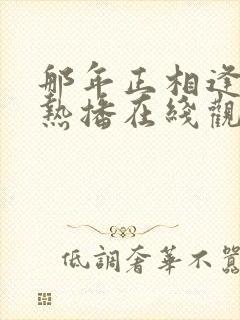 那年正相逢
熱播在綫觀
低調奢華不囂